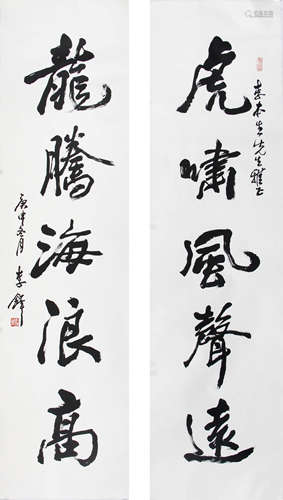 李本生先生雅正
虎嘯風聲遠
龍騰海浪高
庚申冬月 李鐸